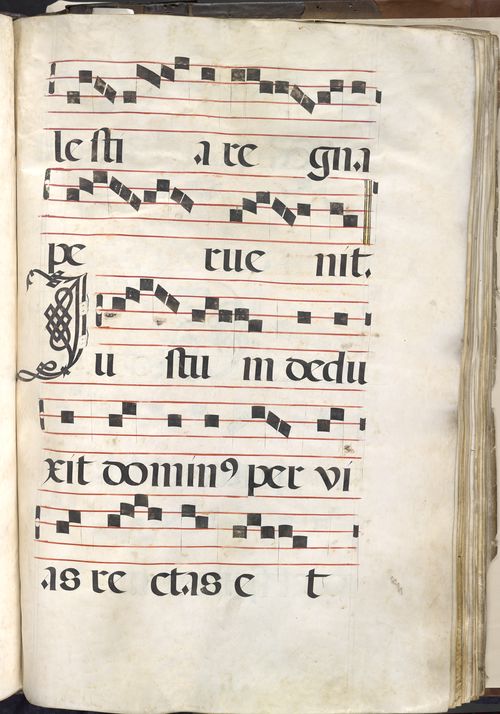 le sti a re gna
pe rue nit.
Iu stu m dedu
xit dominꝰ per vi
as re ctas e t